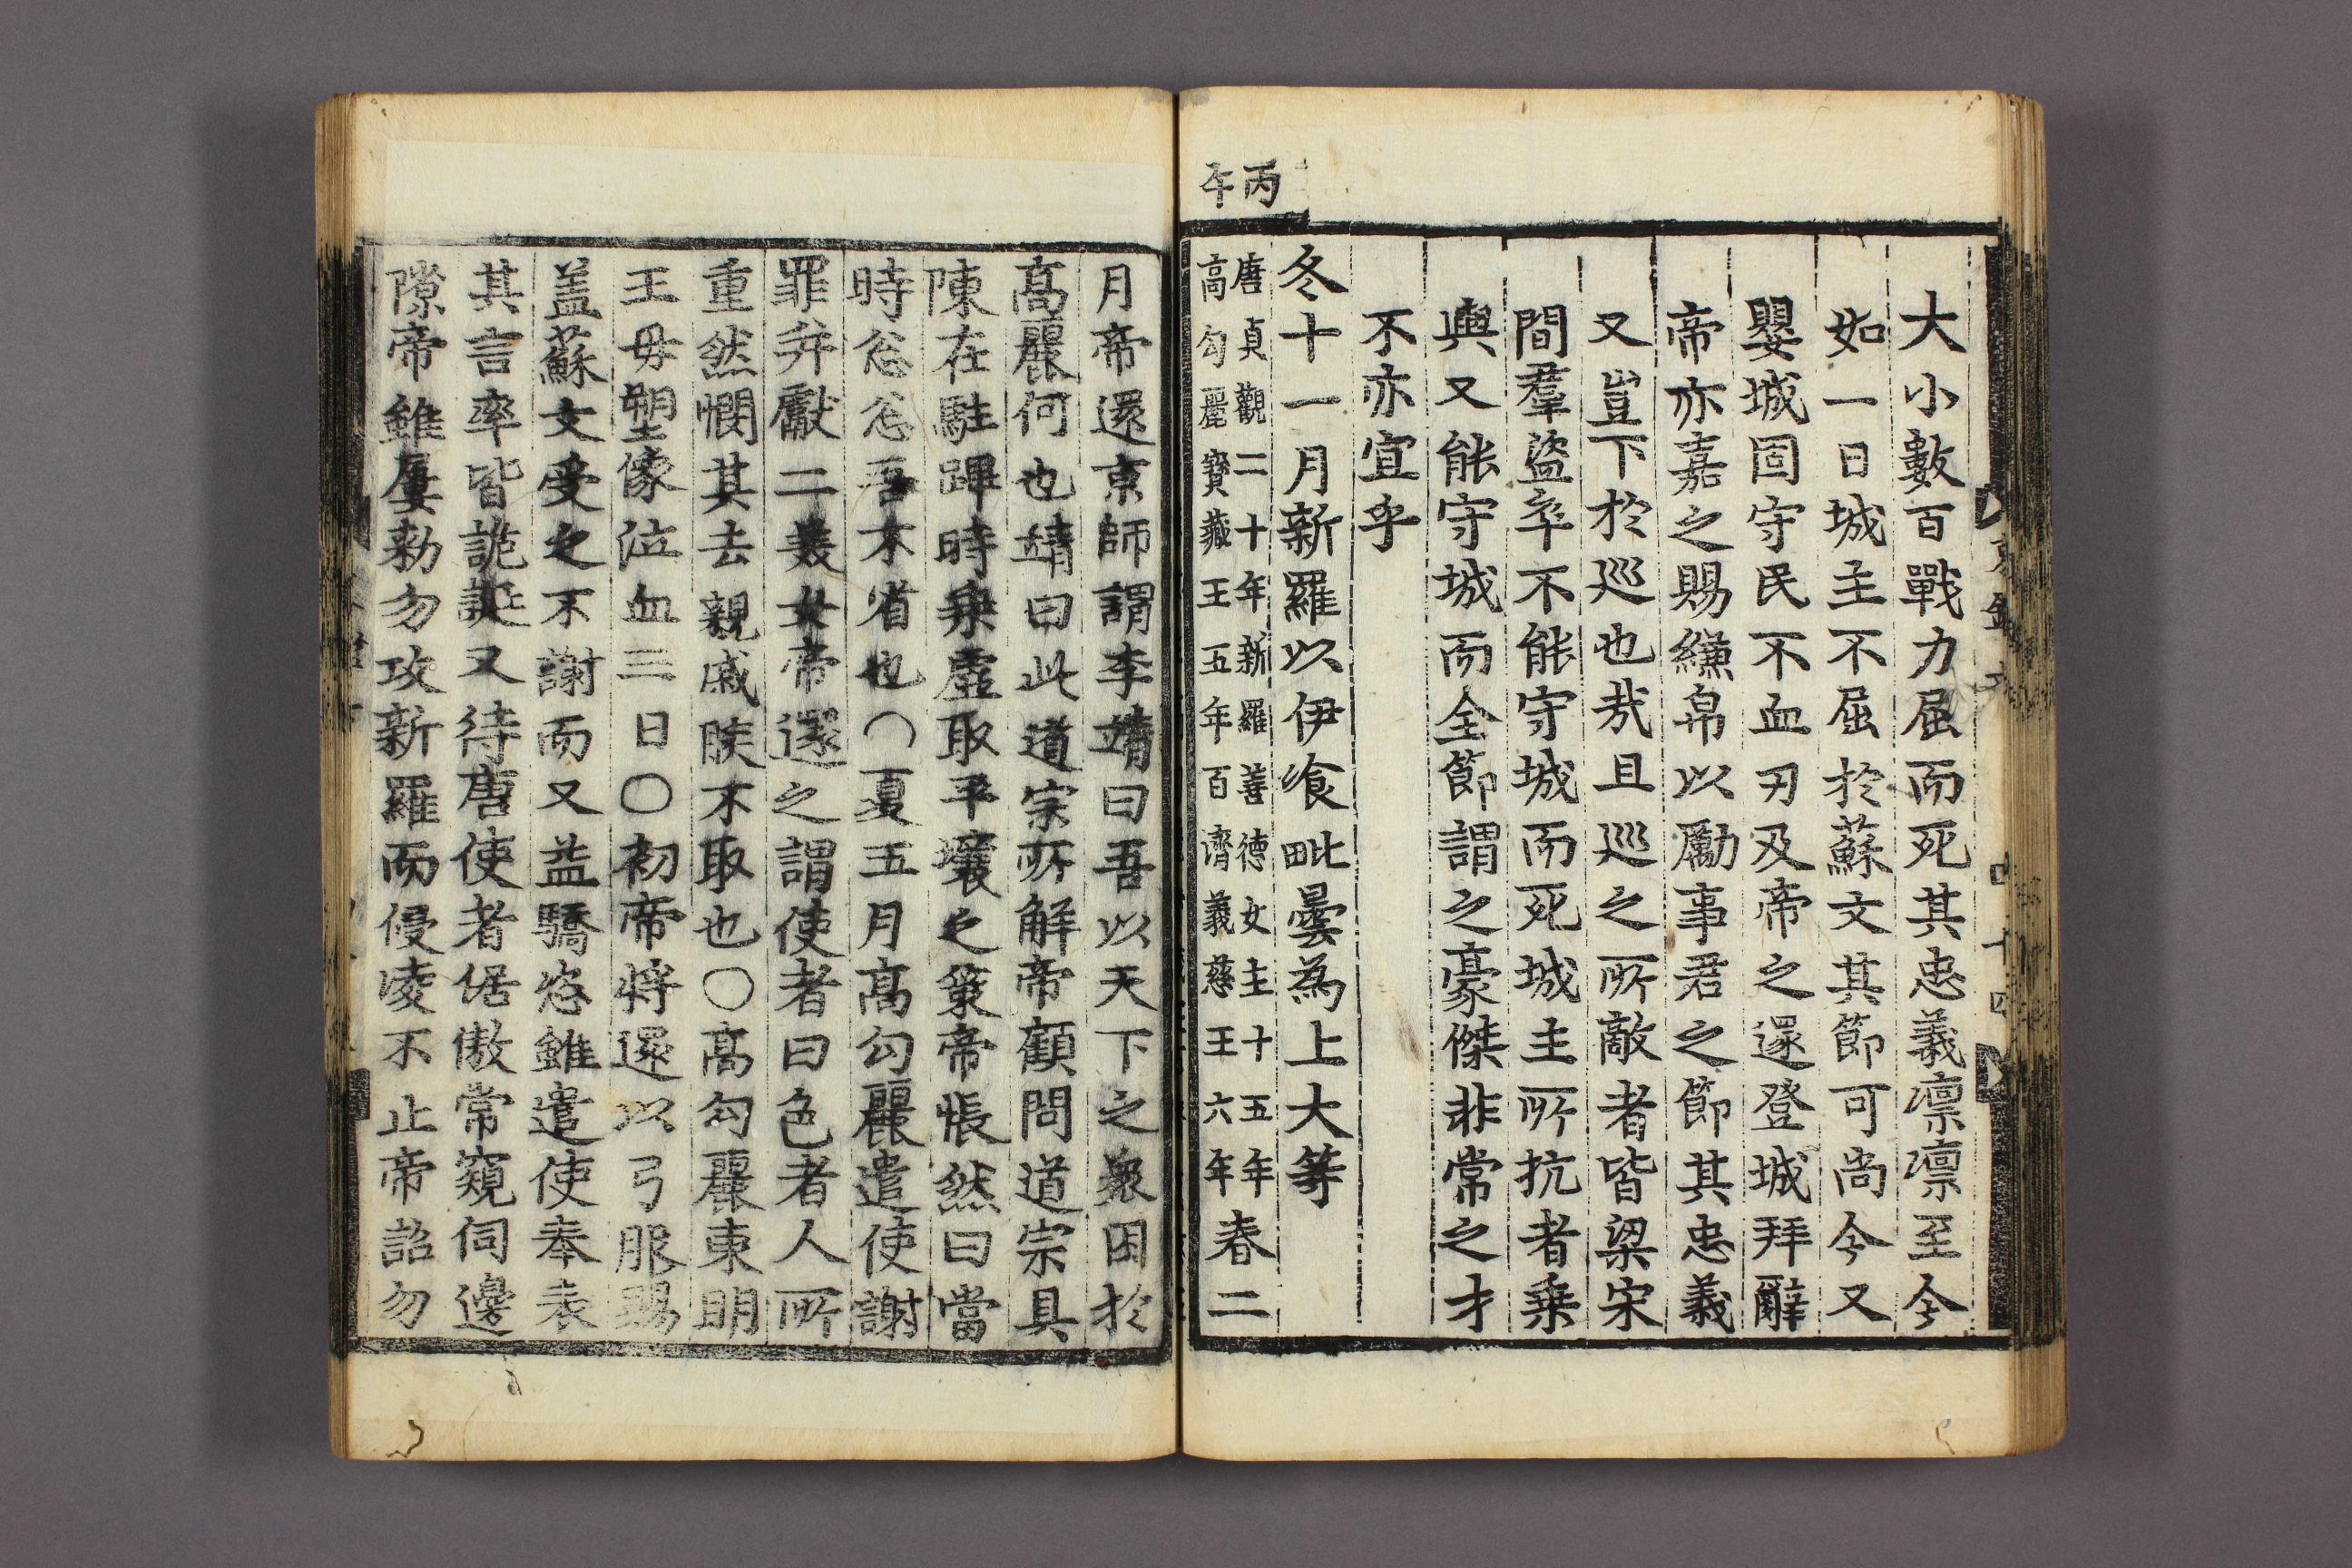 大小數百戰力屈而死其忠義凛凛至今
如一日城主不屈於蘇文其節可尚今又
嬰城固守民不血刃及帝之還登城拜辭
帝亦嘉之賜縑帛以勵事君之節其忠義
又豈下於巡也哉且巡之所敵者皆梁宋
間羣盜卒不能守城而死城主所抗者乗
輿又能守城而全節謂之豪傑非常之才
不亦宜乎
冬十一月新羅以伊飡毗曇為上大等
丙午
唐貞觀二十年新羅善德女主十五年
高勾麗寶藏王五年百濟義慈王六年
春二
月帝還京師謂李靖曰吾以天下之衆困於
高麗何也靖曰此道宗所解帝顧問道宗具
陳在駐蹕時乗虛取平壤之策帝悵然曰當
時忩忩吾不省也〇夏五月高勾麗遣使謝
罪并獻二美女帝還之謂使者曰色者人所
重然憫其去親戚朕不取也〇高勾麗東明
王毋塑像泣血三日〇初帝將還以弓服賜
盖蘇文受之不謝而又益驕恣雖遣使奉表
其言率皆詭誕又待唐使者倨傲常窺伺邊
隙帝雖屢勑勿攻新羅而侵凌不止帝詔勿